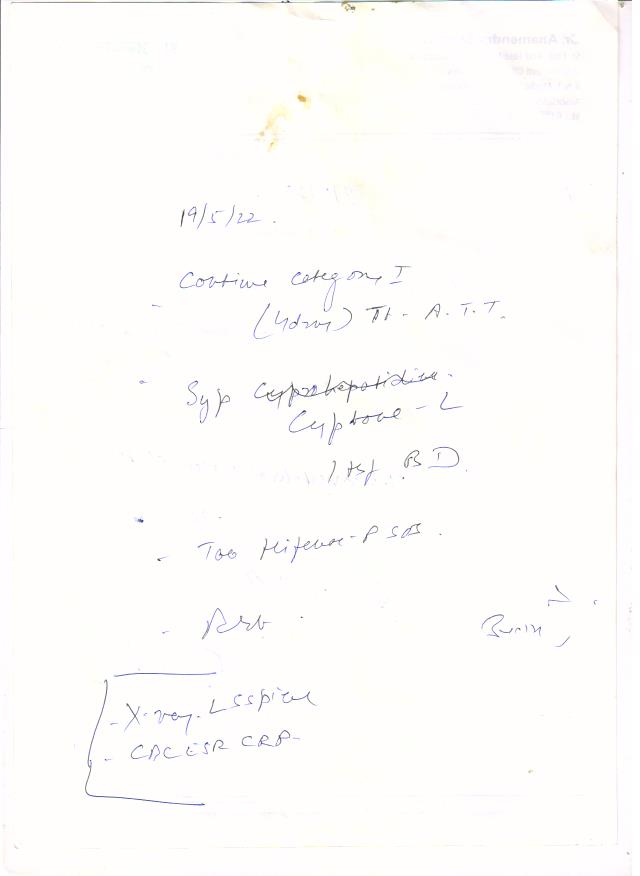 19/5/22.
Continue Category I
(4 drug) Tt - A.T.T.
Syp Cyproheptidine.
Cyptove - L
1 tsf BD.
- Tab Hifenac-P SOS.
- Rest
- X-ray. LSSpine
- CBC ESR CRP